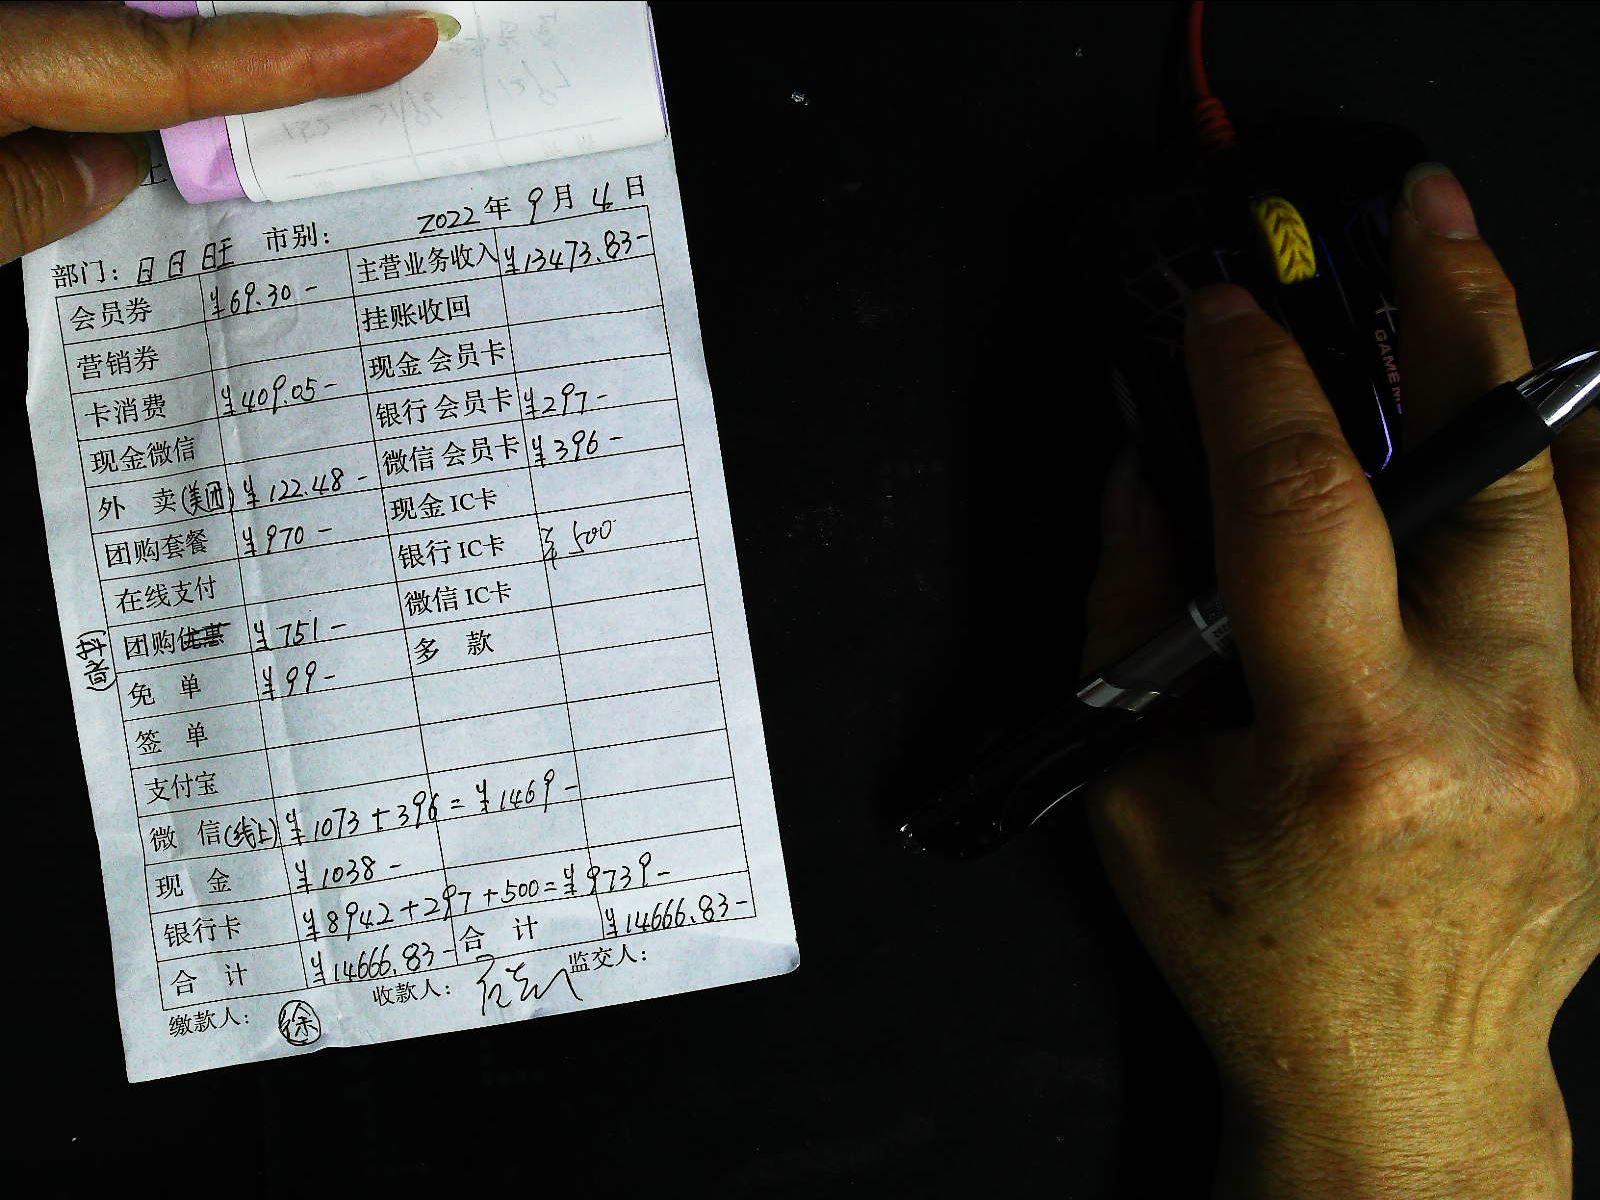 2022年9月4日
部门：日日旺 市别：
会员券 ¥69.30- 主营业务收入 ¥13473.83-
营销券 挂账收回
卡消费 ¥409.05- 现金会员卡
现金微信 银行会员卡 ¥297-
外 卖(美团) ¥122.48- 微信会员卡 ¥396-
团购套餐 ¥970- 现金IC卡
在线支付 银行IC卡 ¥500
团购优惠 ¥751- 微信IC卡
免 单 ¥99- 多 款
签 单
支付宝
微 信(线上) ¥1073+396=¥1469-
现 金 ¥1038-
银行卡 ¥8942+297+500=¥9739-
合 计 ¥14666.83- 合 计 ¥14666.83-
缴款人：徐 收款人： 监交人：
GAME